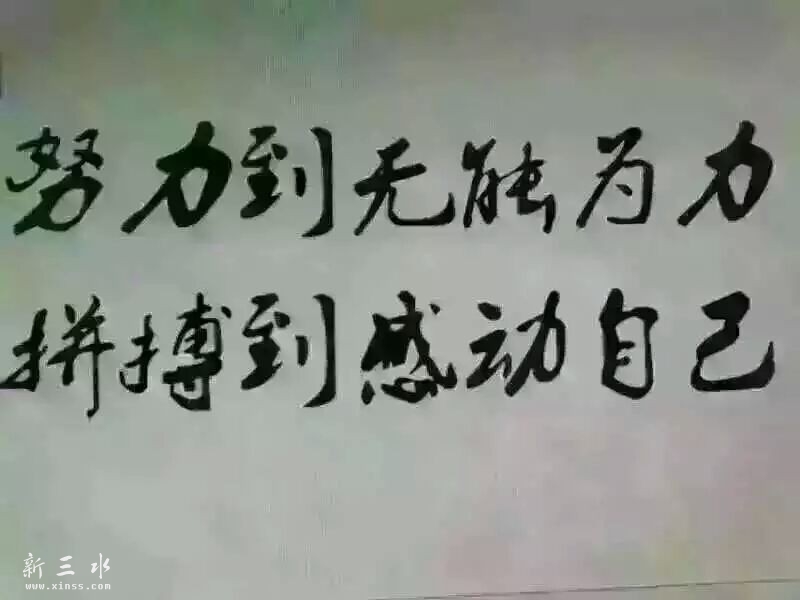 努力到无能为力
拼搏到感动自己
新三水
www.xinss.com